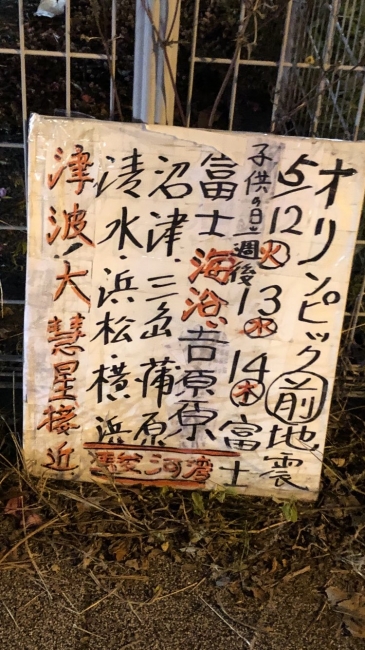 オリンピック前地震
5/12火 13水 14木 富士
子供の日一週後
富士海沿吉原原
沼津、三島蒲原
清水・浜松・横浜
駿河湾
津波!大慧星接近